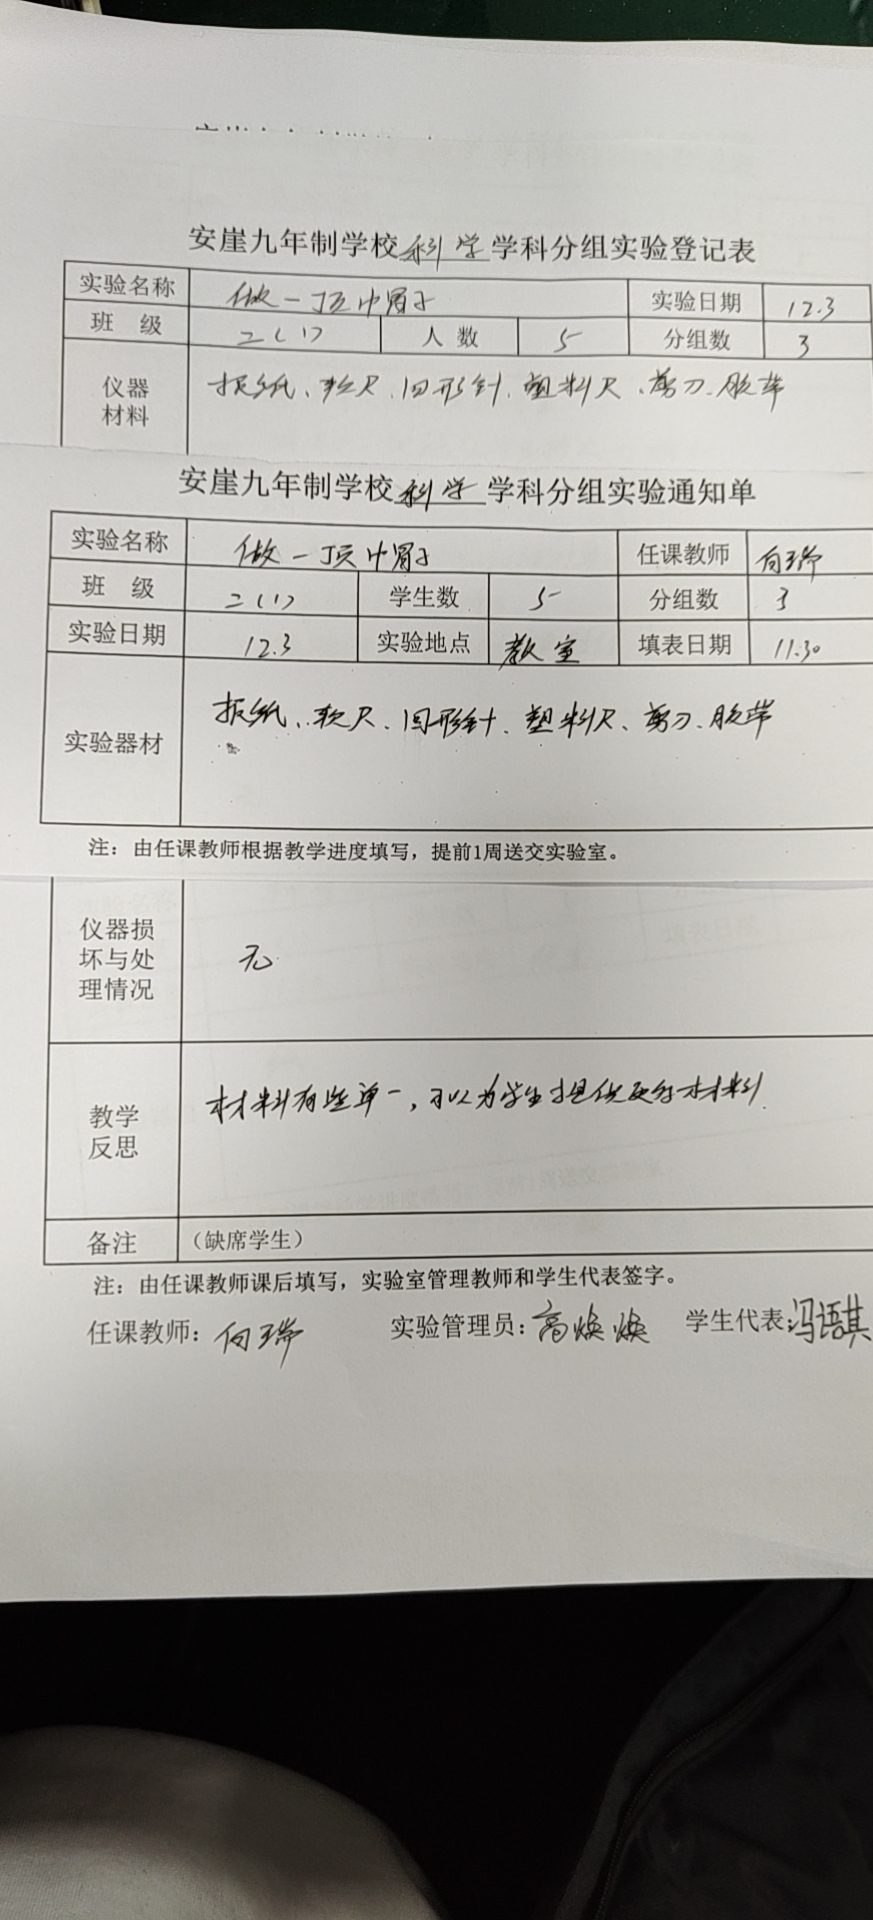 安崖九年制学校科学学科分组实验登记表
实验名称 做一顶巾冒子 实验日期 12.3
班 级 二(1) 人 数 5 分组数 3
仪器材料 报纸、软尺、回形针、塑料尺、剪刀、胶带
安崖九年制学校科学学科分组实验通知单
实验名称 做一顶巾冒子 任课教师 向瑞
班 级 二(1) 学生数 5 分组数 3
实验日期 12.3 实验地点 教室 填表日期 11.30
实验器材 报纸、软尺、回形针、塑料尺、剪刀、胶带
注：由任课教师根据教学进度填写，提前1周送交实验室。
仪器损坏与处理情况 无
教学反思 材料有些单一，可以为学生提供更多材料
备注 （缺席学生）
注：由任课教师课后填写，实验室管理教师和学生代表签字。
任课教师：向瑞 实验管理员：高焕焕 学生代表：冯语其